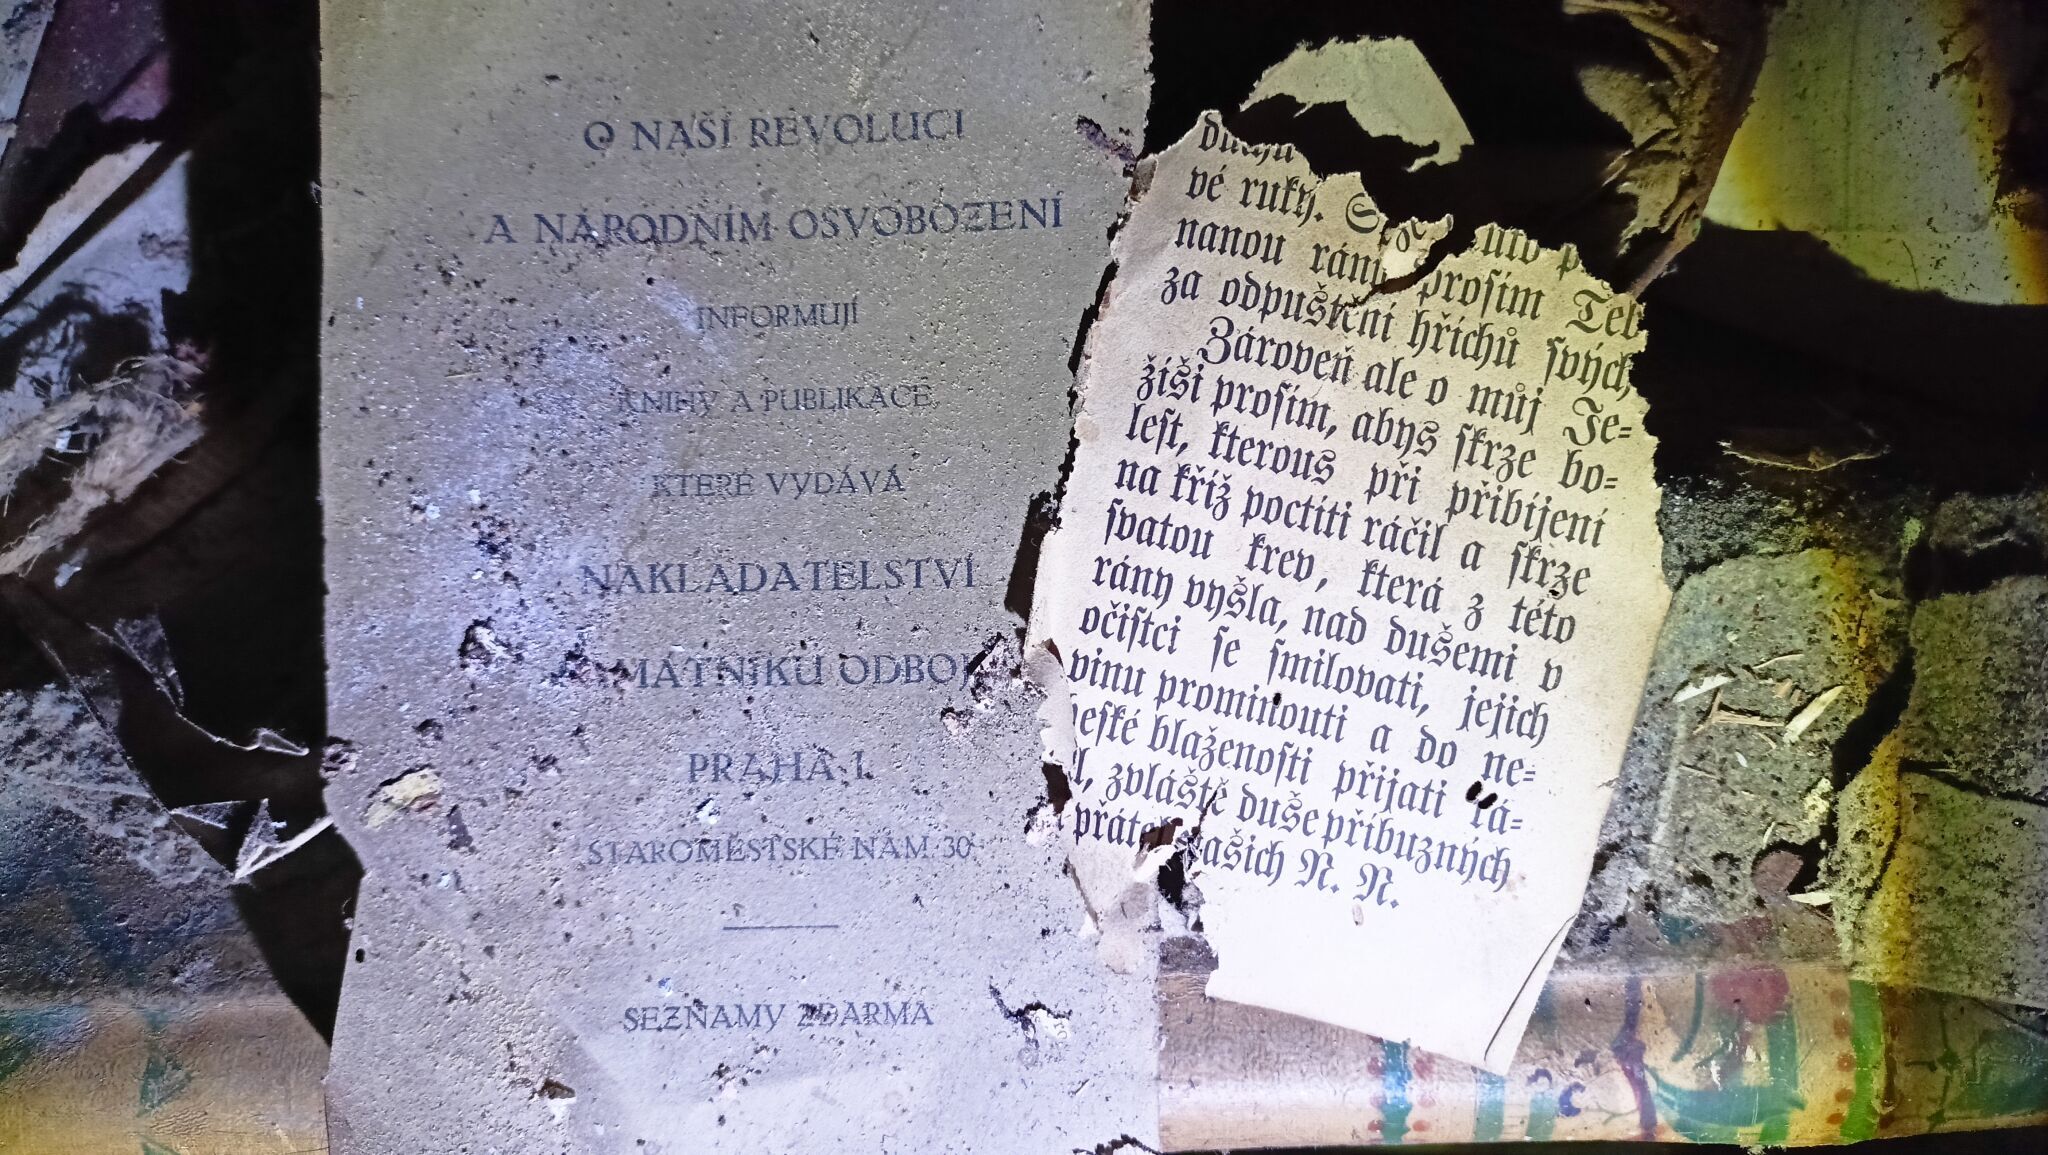 O NAŠÍ REVOLUCI
A NÁRODNÍM OSVOBOZENÍ
INFORMUJÍ
KNIHY A PUBLIKACE,
KTERÉ VYDÁVÁ
NAKLADATELSTVÍ
PAMÁTNÍKU ODBOJE
PRAHA I.
STAROMĚSTSKÉ NÁM. 30
SEZNAMY ZDARMA
vé ruky.
nanou ránu prosím Teb
za odpuštění hříchů svých
Zároveň ale o můj Je-
žíši prosím, abys skrze bo-
lest, kterous při přibíjení
na kříž poctíti ráčil a skrze
svatou krev, která z této
rány vyšla, nad dušemi v
očistci se smilovati, jejich
vinu prominouti a do ne-
beské blaženosti přijati rá-
l, zvláště duše příbuzných
přátel našich N. N.